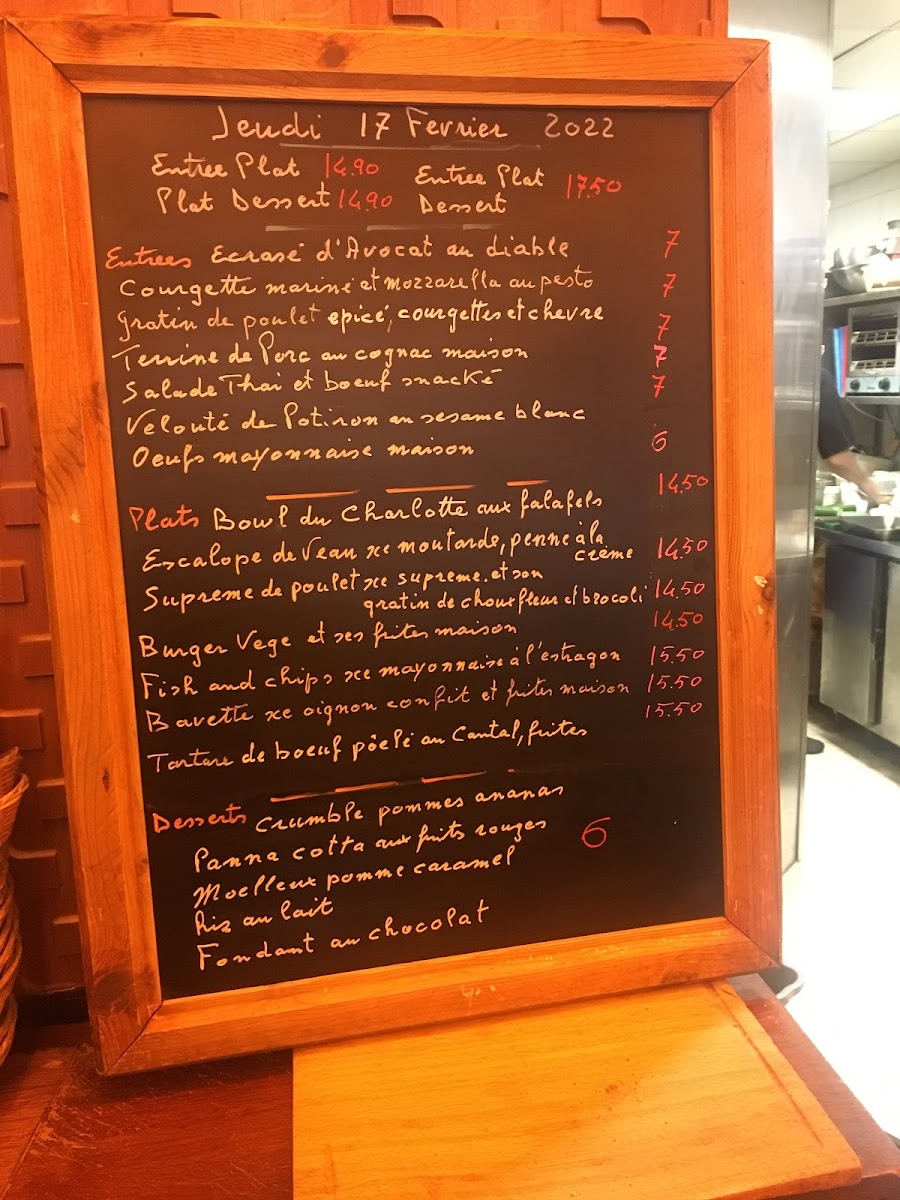 Jeudi 17 Fevrier 2022
Entree Plat 14.90
Plat Dessert 14.90
Entree Plat
Dessert 17.50
Entrees Ecrasé d'Avocat au diable 7
Courgette mariné et mozzarella au pesto 7
Gratin de poulet epicé, courgettes et chevre 7
Terrine de Porc au cognac maison 7
Salade Thai et boeuf snacké 7
Velouté de Potiron au sesame blanc
Oeufs mayonnaise maison 6
Plats Bowl du Charlotte aux falafels 14.50
Escalope de Veau sce moutarde, penne à la
crème 14.50
Supreme de poulet sce supreme et son
gratin de chouxfleur et brocoli 14.50
Burger Vege et ses frites maison 14.50
Fish and chips sce mayonnaise à l'estragon 15.50
Bavette sce oignon confit et frites maison 15.50
Tartare de boeuf pôelé au Cantal, frites 15.50
Desserts Crumble pommes ananas
Panna cotta aux fruits rouges 6
Moelleux pomme caramel
Riz au lait
Fondant au chocolat